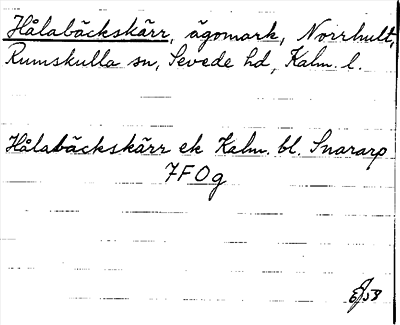 Hålabäckskärr, ägomark, Norrhult,
Rumskulla sn, Sevede hd, Kalm. l.
Hålabäckskärr ek Kalm. bl. Snararp
7F0g